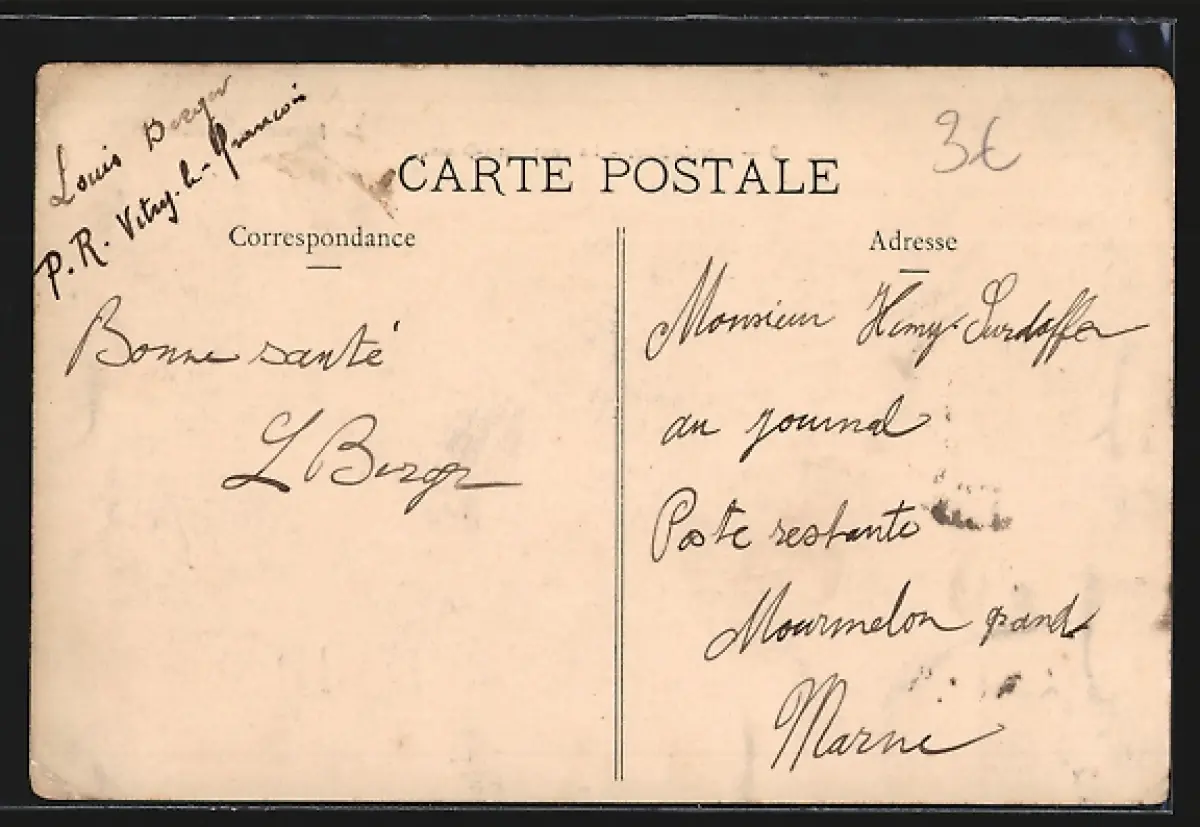 Louis Berger
P.R. Vitry-le-François
3€
CARTE POSTALE
Correspondance
Adresse
Bonne santé
L Berger
Monsieur Henry
au journal
Poste restante
Mourmelon grand
Marne